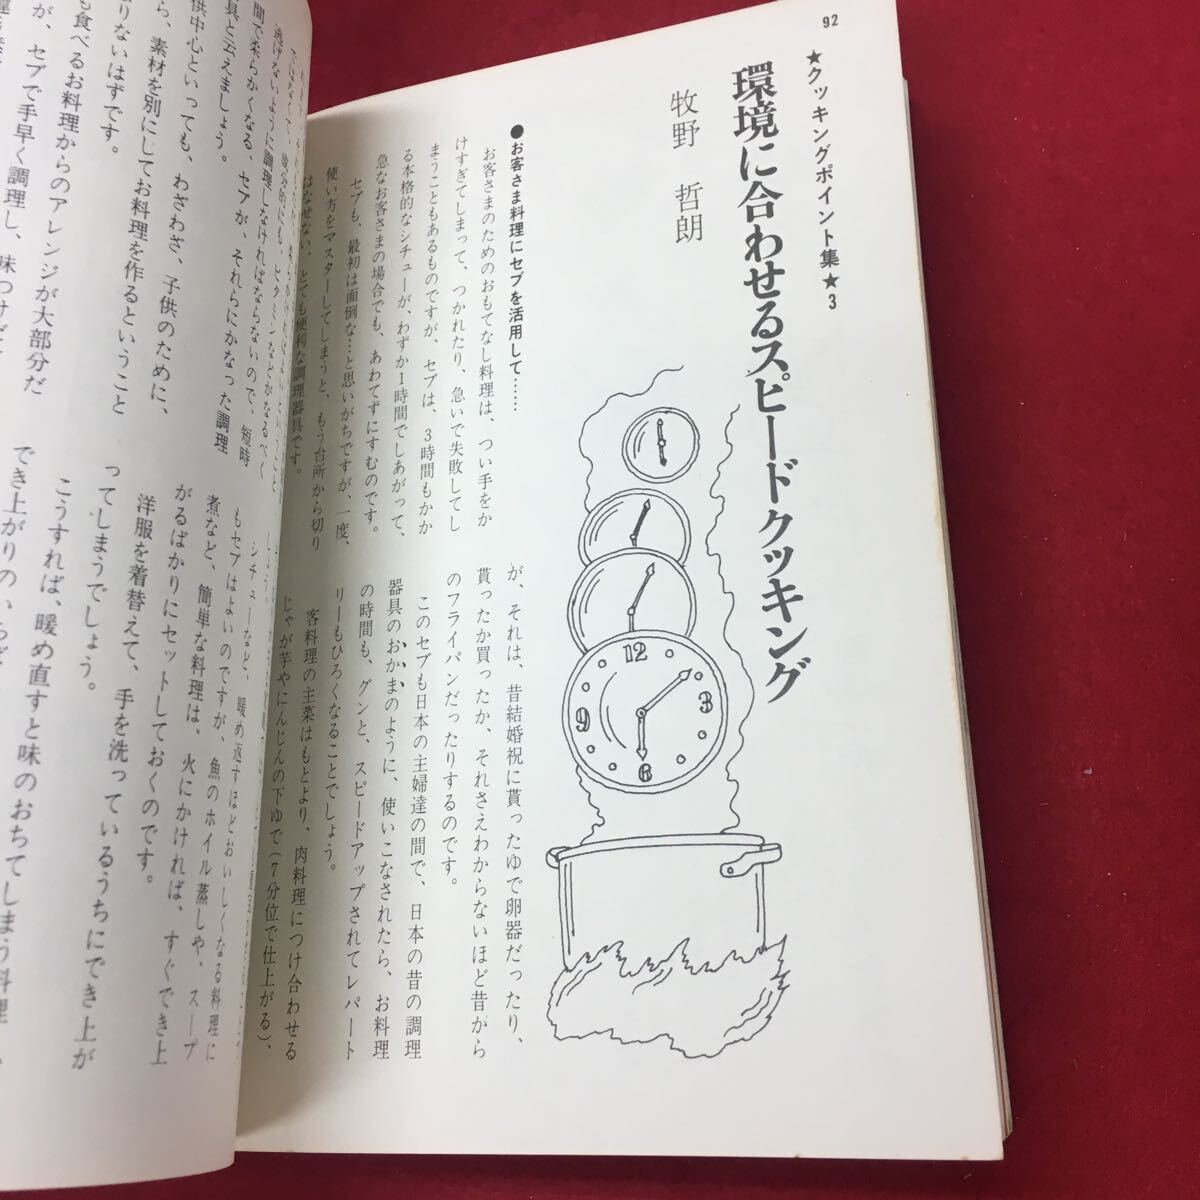 92
★クッキングポイント集★3
環境に合わせるスピードクッキング
牧野 哲朗
●お客さま料理にセブを活用して……
お客さまのためのおもてなし料理は、つい手をか
けすぎてしまって、つかれたり、急いで失敗してし
まうこともあるものですが、セブは、3時間もかか
る本格的なシチューが、わずか1時間でしあがって、
急なお客さまの場合でも、あわてずにすむのです。
セブも、最初は面倒な…と思いがちですが、一度、
使い方をマスターしてしまうと、もう台所から切り
はなせない、とても便利な調理器具です。
が、それは、昔結婚祝に貰ったゆで卵器だったり、
貰ったか買ったか、それさえわからないほど昔から
のフライパンだったりするのです。
このセブも日本の主婦達の間で、日本の昔の調理
器具のおかまのように、使いこなされたら、お料理
の時間も、グンと、スピードアップされてレパート
リーもひろくなることでしょう。
客料理の主菜はもとより、肉料理につけ合わせる
じゃが芋やにんじんの下ゆで(7分位で仕上がる)、
12
3
6
9
逃げないように調理しなければならないので、短時
間で柔らかくなる、セブが、それらにかなった調理
具と云えましょう。
供中心といっても、わざわざ、子供のために、
ら、素材を別にしてお料理を作るということ
りないはずです。
も食べるお料理からのアレンジが大部分だ
が、セブで手早く調理し、味つけだ
シチューなど、暖め返すほどおいしくなる料理に
もセブはよいのですが、魚のホイル蒸しや、スープ
煮など、簡単な料理は、火にかければ、すぐでき上
がるばかりにセットしておくのです。
洋服を着替えて、手を洗っているうちにでき上が
ってしまうでしょう。
こうすれば、暖め直すと味のおちてしまう料理
でき上がりの、